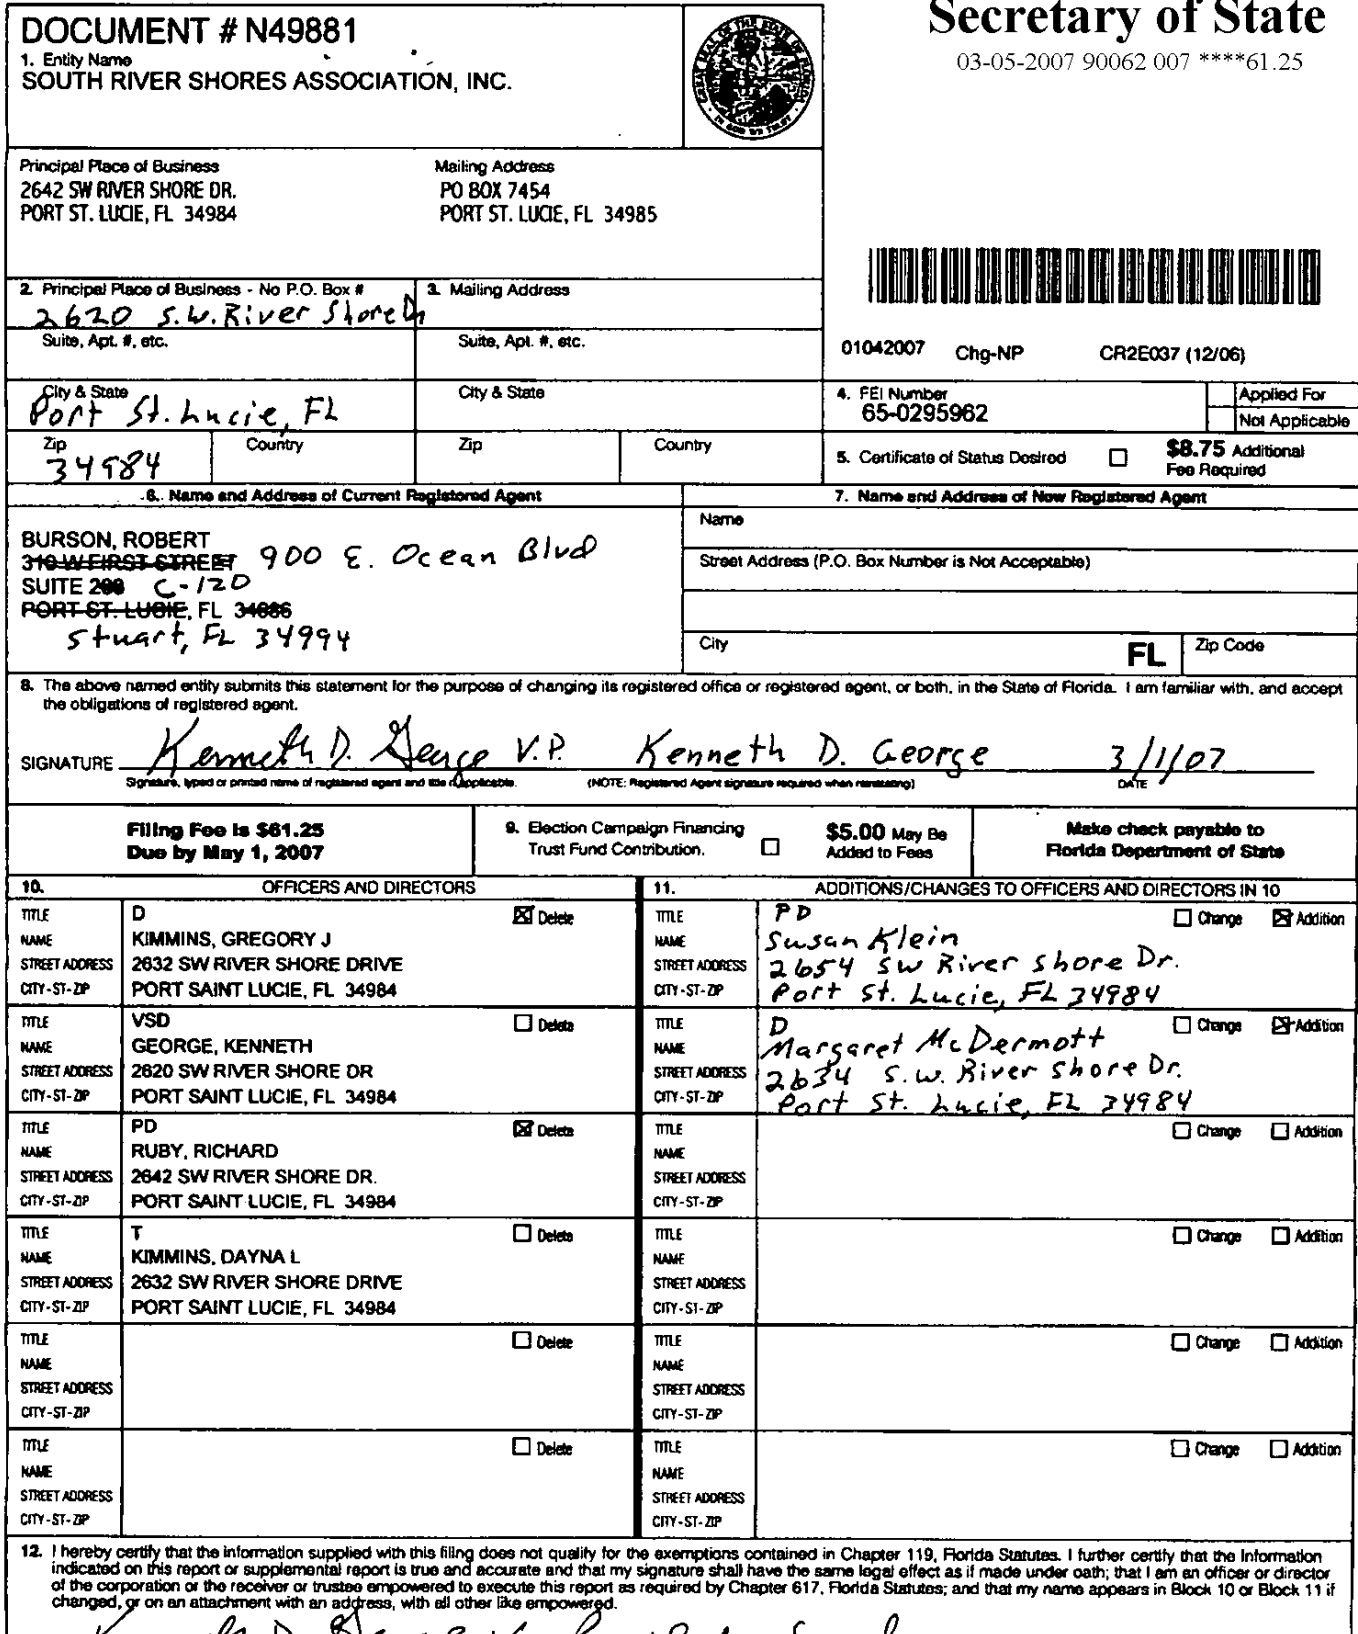 Secretary of State
03-05-2007 90062 007 ****61.25
DOCUMENT # N49881
1. Entity Name
SOUTH RIVER SHORES ASSOCIATION, INC.
Principal Place of Business
2642 SW RIVER SHORE DR.
PORT ST. LUCIE, FL 34984
Mailing Address
PO BOX 7454
PORT ST. LUCIE, FL 34985
2. Principal Place of Business - No P.O. Box #
2620 S.W. River Shore Dr
3. Mailing Address
Suite, Apt. #, etc.
Suite, Apt. #, etc.
City & State
Port St. Lucie, FL
City & State
Zip
34984
Country
Zip
Country
01042007 Chg-NP CR2E037 (12/06)
4. FEI Number
65-0295962
Applied For
Not Applicable
5. Certificate of Status Desired
$8.75 Additional
Fee Required
6. Name and Address of Current Registered Agent
BURSON, ROBERT
310 W FIRST STREET 900 E. Ocean Blvd
SUITE 200 C-120
PORT ST. LUCIE, FL 34986
Stuart, FL 34994
7. Name and Address of New Registered Agent
Name
Street Address (P.O. Box Number is Not Acceptable)
City
FL
Zip Code
8. The above named entity submits this statement for the purpose of changing its registered office or registered agent, or both, in the State of Florida. I am familiar with, and accept
the obligations of registered agent.
SIGNATURE Kenneth D. George V.P. Kenneth D. George 3/1/07
Signature, typed or printed name of registered agent and title if applicable. (NOTE: Registered Agent signature required when reinstating) DATE
Filing Fee is $61.25
Due by May 1, 2007
9. Election Campaign Financing
Trust Fund Contribution.
$5.00 May Be
Added to Fees
Make check payable to
Florida Department of State
10. OFFICERS AND DIRECTORS
11. ADDITIONS/CHANGES TO OFFICERS AND DIRECTORS IN 10
TITLE D Delete
NAME KIMMINS, GREGORY J
STREET ADDRESS 2632 SW RIVER SHORE DRIVE
CITY-ST-ZIP PORT SAINT LUCIE, FL 34984
TITLE PD Change Addition
NAME Susan Klein
STREET ADDRESS 2654 SW River Shore Dr.
CITY-ST-ZIP Port St. Lucie, FL 34984
TITLE VSD Delete
NAME GEORGE, KENNETH
STREET ADDRESS 2620 SW RIVER SHORE DR
CITY-ST-ZIP PORT SAINT LUCIE, FL 34984
TITLE D Change Addition
NAME Margaret McDermott
STREET ADDRESS 2634 S.W. River Shore Dr.
CITY-ST-ZIP Port St. Lucie, FL 34984
TITLE PD Delete
NAME RUBY, RICHARD
STREET ADDRESS 2642 SW RIVER SHORE DR.
CITY-ST-ZIP PORT SAINT LUCIE, FL 34984
TITLE Change Addition
NAME
STREET ADDRESS
CITY-ST-ZIP
TITLE T Delete
NAME KIMMINS, DAYNA L
STREET ADDRESS 2632 SW RIVER SHORE DRIVE
CITY-ST-ZIP PORT SAINT LUCIE, FL 34984
TITLE Change Addition
NAME
STREET ADDRESS
CITY-ST-ZIP
TITLE Delete
NAME
STREET ADDRESS
CITY-ST-ZIP
TITLE Change Addition
NAME
STREET ADDRESS
CITY-ST-ZIP
TITLE Delete
NAME
STREET ADDRESS
CITY-ST-ZIP
TITLE Change Addition
NAME
STREET ADDRESS
CITY-ST-ZIP
12. I hereby certify that the information supplied with this filing does not qualify for the exemptions contained in Chapter 119, Florida Statutes. I further certify that the information
indicated on this report or supplemental report is true and accurate and that my signature shall have the same legal effect as if made under oath; that I am an officer or director
of the corporation or the receiver or trustee empowered to execute this report as required by Chapter 617, Florida Statutes; and that my name appears in Block 10 or Block 11 if
changed, or on an attachment with an address, with all other like empowered.